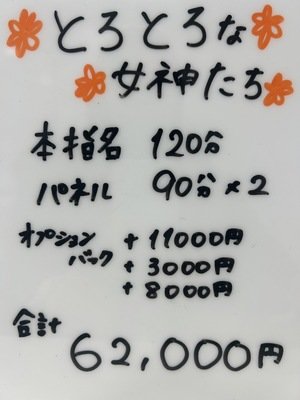 とろとろな
女神たち
本指名 120分
パネル 90分×2
オプション +11000円
バック +3000円
+8000円
合計
62,000円